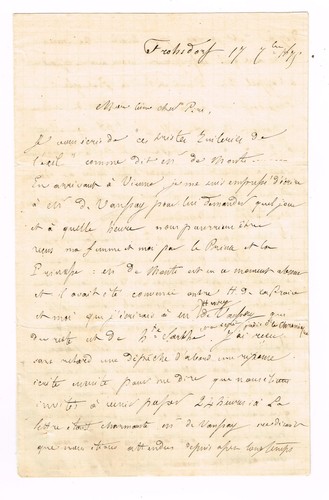 Frohsdorf 17 7bre 1875
Mon bien cher Pori.
Je vous écris de "ces tristes
l'exil" comme dit Mr de Monti
En arrivant à Vienne je me suis empressé d'écrire
à Mr de Vanssay pour lui demander quel jour
et à quelle heure nous pourrions être
reçus ma femme et moi par le Prince et la
Princesse: Mr de Monti est en ce moment absent
et il avait été convenu entre H de
et moi que j'écrirais à Mr de Vanssay que
et de la Hte Sarthe. J'ai reçu
sans retard une dépêche d'abord une réponse
écrite ensuite pour me dire que nous étions
invités à venir passer 24 heures ici La
lettre était charmante Mr de Vanssay me disait
que nous étions attendus depuis assez longtemps